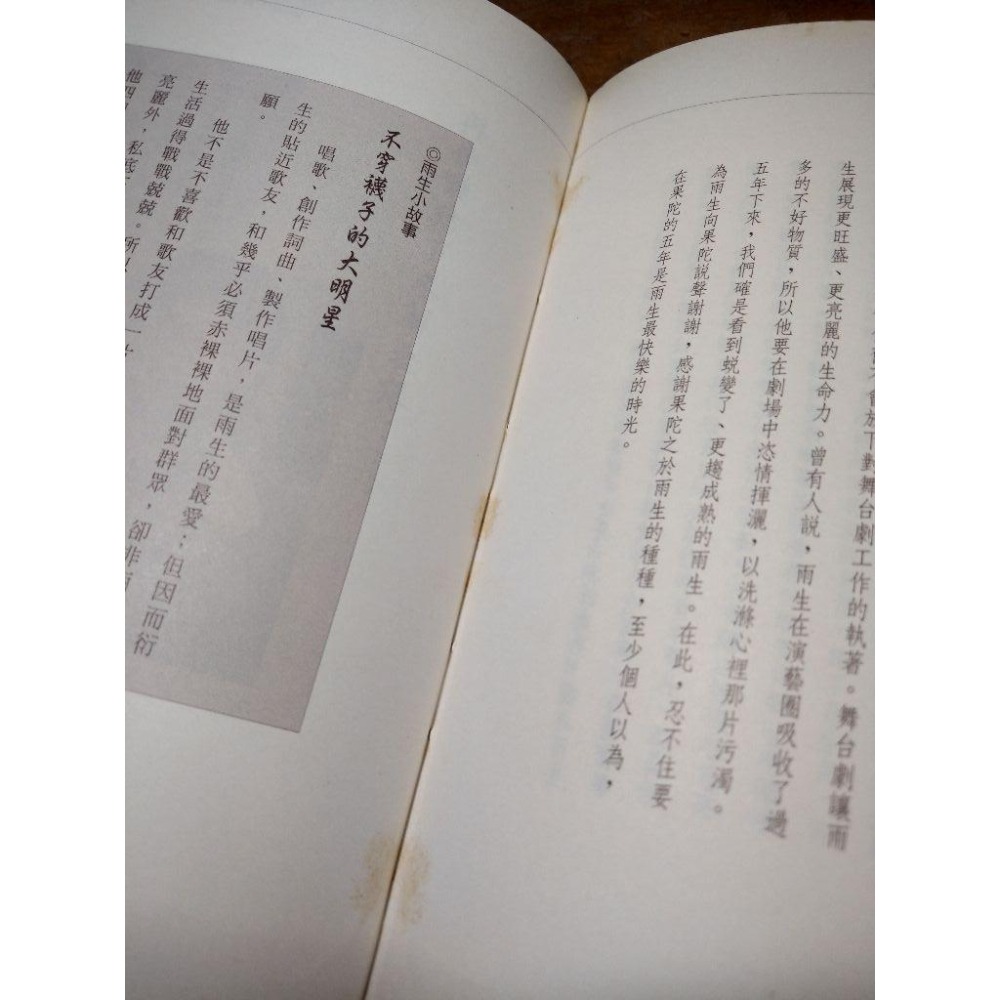 會放下對舞台劇工作的執著。舞台劇讓雨
生展現更旺盛、更亮麗的生命力。曾有人說,雨生在演藝圈吸收了過
多的不好物質,所以他要在劇場中恣情揮灑,以洗滌心裡那片污濁。
五年下來,我們確是看到蛻變了、更趨成熟的雨生。在此,忍不住要
為雨生向果陀說聲謝謝,感謝果陀之於雨生的種種,至少個人以為,
在果陀的五年是雨生最快樂的時光。
◎雨生小故事
不穿襪子的大明星
唱歌、創作詞曲、製作唱片,是雨生的最愛;但因而衍
生的貼近歌友,和幾乎必須赤裸裸地面對群眾,卻非
願。
他不是不喜歡和歌友打成一
生活過得戰戰兢兢。所以
亮麗外,私底下